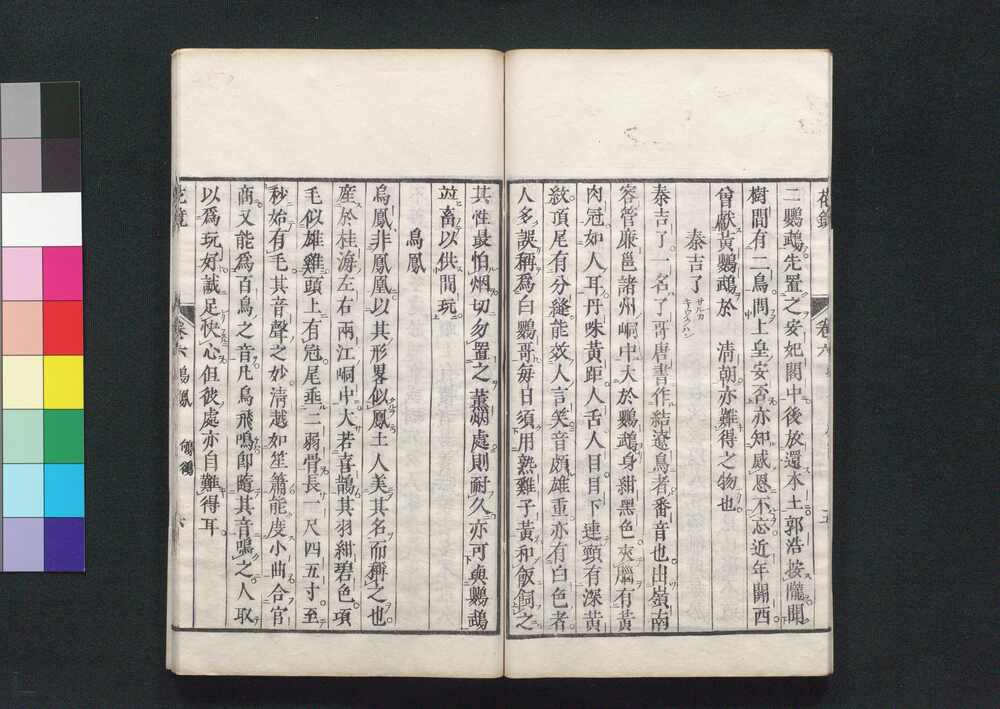 二鸚鵡先置之安妃閣中後放還本土郭浩按隴聞
樹間有二鳥問上皇安否亦知感恩不忘近年關西
曾獻黃鸚鵡於　清朝亦難得之物也
秦吉了
サルカ
キウクハン
秦吉了一名了哥唐書作結遼鳥者番音也出嶺南
容管廉邕諸州峒中大於鸚鵡身紺黑色夾腦有黃
肉冠如人耳丹咮黃距人舌人目目下連頸有深黃
紋頂尾有分縫能效人言笑音頗雄重亦有白色者
人多誤稱爲白鸚哥每日須用熟雞子黃和飯飼之
其性最怕烟切勿置之薰烟處則耐久亦可與鸚鵡
並畜以供閒玩
烏鳳
烏鳳非鳳凰以其形畧似鳳土人美其名而稱之也
產於桂海左右兩江峒中大若喜鵲其羽紺碧色項
毛似雄雞頭上有冠尾垂二弱骨長一尺四五寸至
杪始有毛其音聲之妙淸越如笙簫能度小曲合宮
商又能爲百鳥之音凡鳥飛鳴卽隨其音鳴之人取
以爲玩好誠足快心但彼處亦自難得耳
卷六